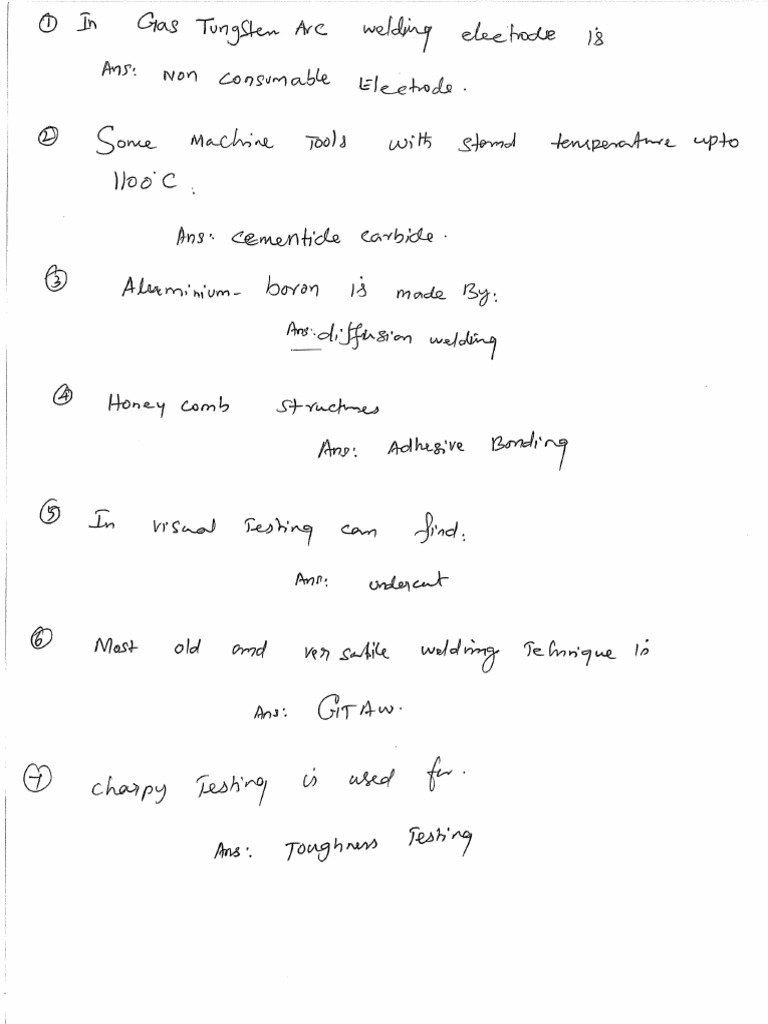 ① In Gas Tungsten Arc welding electrode is
Ans: Non Consumable Electrode.
② Some Machine Tools with stand temperature upto
1100°C.
Ans: cementide carbide.
③ Aluminium- boron is made By:
Ans: diffusion welding
④ Honey comb structures
Ans: Adhesive Bonding
⑤ In visual Testing can find:
Ans: undercut
⑥ Most old and versatile welding Technique is
Ans: GTAW.
⑦ charpy Testing is used for.
Ans: Toughness Testing